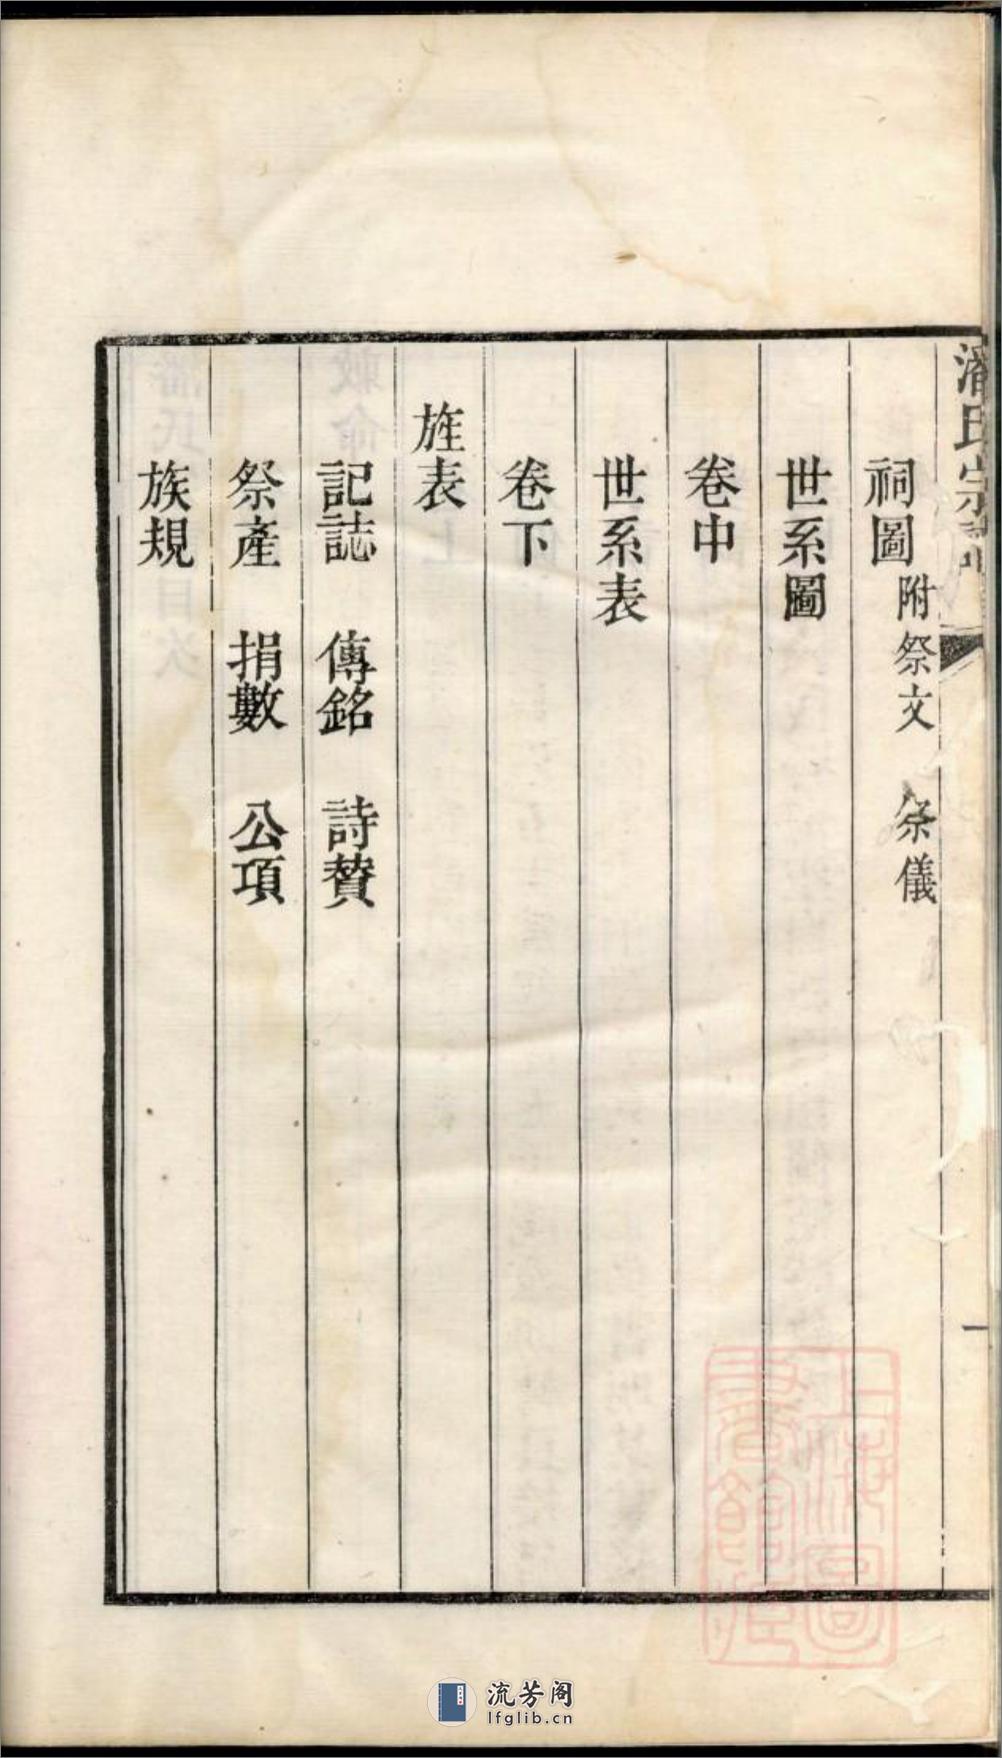 潘氏宗譜
祠圖 附祭文 祭儀
世系圖
卷中
世系表
卷下
旌表
記誌 傳銘 詩贊
祭產 捐數 公項
族規
一
上海圖書館藏
流芳阁
lfglib.cn